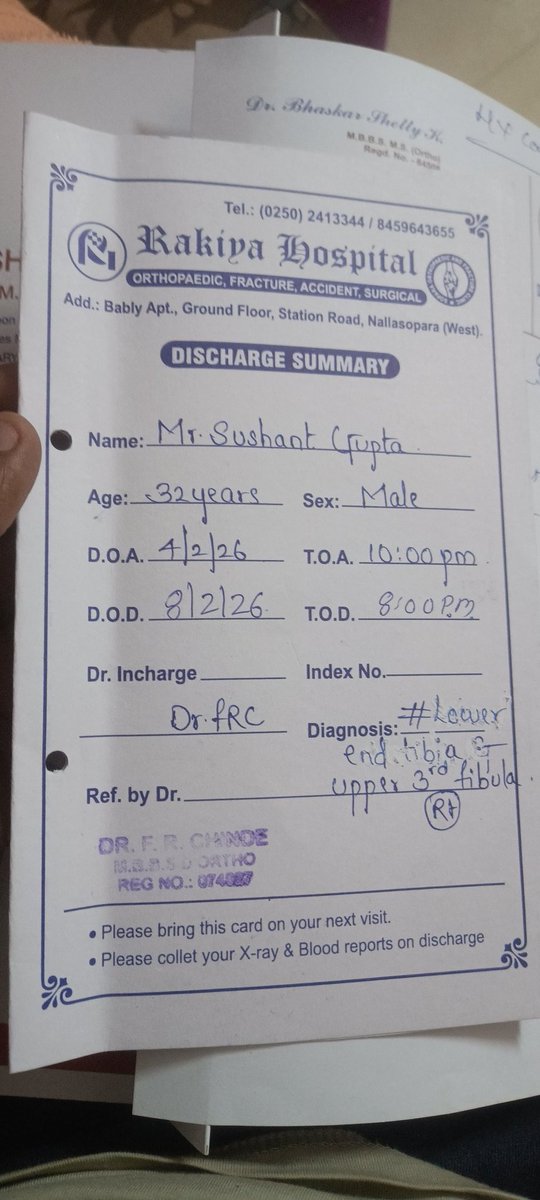 Dr. Bhaskar Shetty K.
M.B.B.S. M.S. (Ortho)
Regd. No. -
Tel.: (0250) 2413344 / 8459643655
Rakiya Hospital
ORTHOPAEDIC, FRACTURE, ACCIDENT, SURGICAL
Add.: Bably Apt., Ground Floor, Station Road, Nallasopara (West).
DISCHARGE SUMMARY
Name: Mr. Sushant Gupta
Age: 32 years Sex: Male
D.O.A. 4/2/26 T.O.A. 10:00 pm
D.O.D. 8/2/26 T.O.D. 8:00 P.M
Dr. Incharge Index No.
Dr. FRC Diagnosis: # Lower
end tibia &
upper 3rd fibula
Ref. by Dr. (Rt)
DR. F. R. CHINDE
M.B.B.S D ORTHO
REG NO.:
• Please bring this card on your next visit.
• Please collet your X-ray & Blood reports on discharge